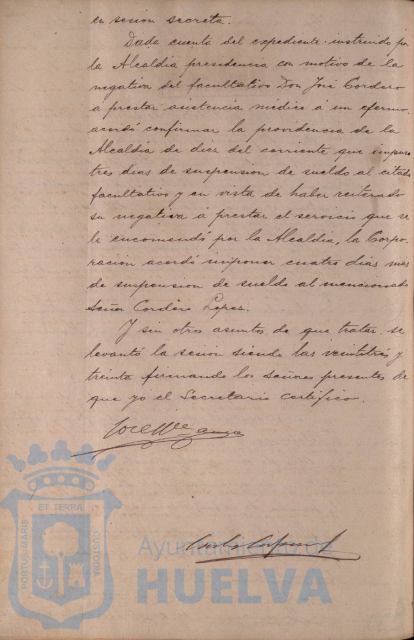 en sesión secreta.
Dada cuenta del expediente instruido por
la Alcaldía presidencia con motivo de la
negativa del facultativo Don José Cordero
a prestar asistencia médica á un enfermo,
acordó confirmar la providencia de la
Alcaldía de diez del corriente que impuso
tres dias de suspensión de sueldo al citado
facultativo y en vista de haber reiterado
su negativa á prestar el servicio que se
le encomendó por la Alcaldía, la Corpo-
ración acordó imponer cuatro dias mas
de suspensión de sueldo al mencionado
Señor Cordero Lopez.
Y sin otros asuntos de que tratar se
levantó la sesión siendo las veintitrés y
treinta firmando los señores presentes de
que yo el Secretario certifico.
PORTUS MARIS
ET TERRÆ
CUSTODIA
Ayuntamiento de
HUELVA